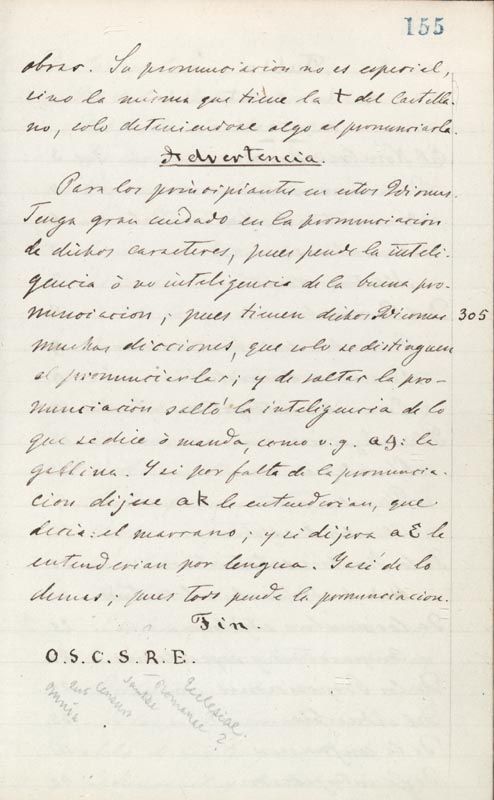 155
obrar. Su pronunciacion no es especial,
sino la misma que tiene la t del Castella-
no, solo deteniendose algo al pronunciarla.
Advertencia.
Para los principiantes en estos Idiomas.
Tenga gran cuidado en la pronunciacion
de dichos caracteres, pues pende la inteli-
gencia ò no inteligencia de la buena pro-
nunciacion; pues tienen dichos Idiomas
305
muchas dicciones, que solo se distinguen
al pronunciarlas; y de saltar la pro-
nunciacion saltó la inteligencia de lo
que se dice ò manda, como v. g. : la
gallina. Y si por falta de la pronuncia-
cion dijese ak le entenderian, que
decia: el marrano; y si dijera aƐ le
entenderian por lengua. Y asi de lo
demas; pues todo pende la pronunciacion.
Fin.
O. S. C. S. R. E.
omnia sub censura Santae Romanae Ecclesiae?